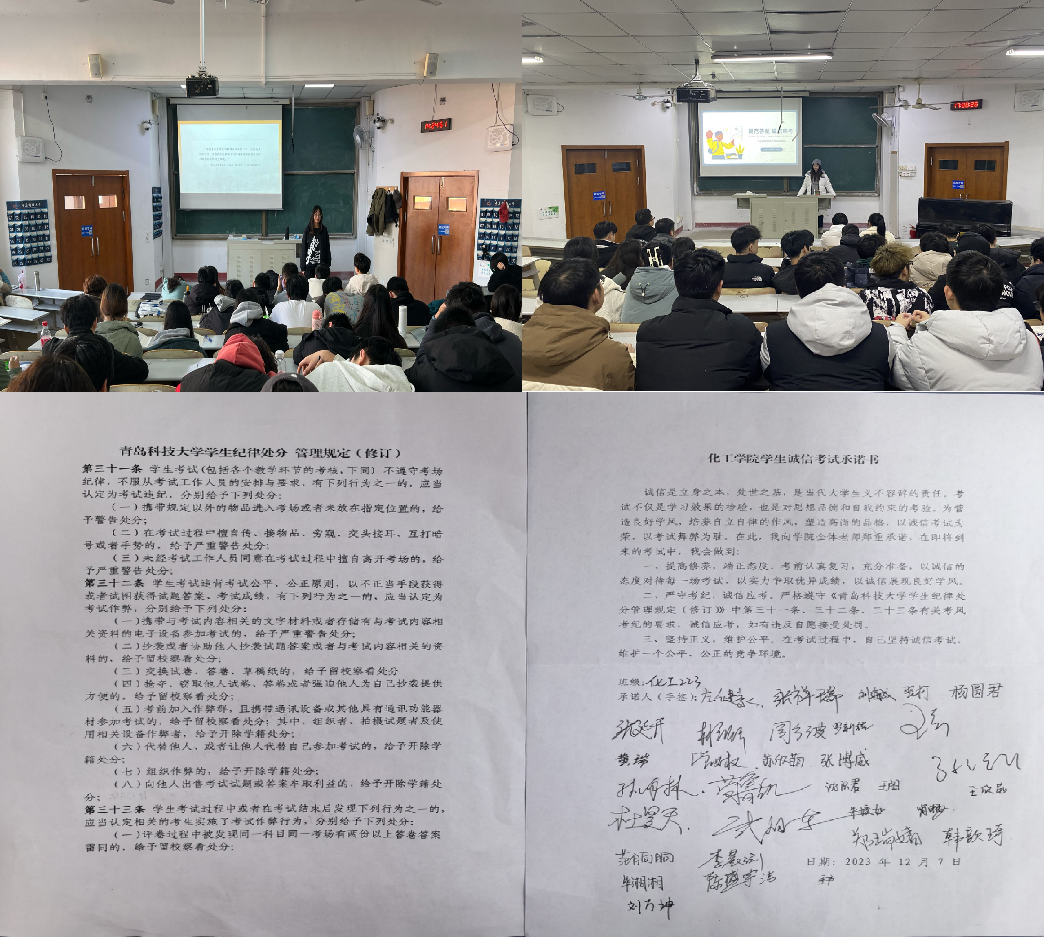 17:00:26
青岛科技大学学生纪律处分 管理规定(修订)
第三十一条 学生考试(包括各个教学环节的考核,下同)不遵守考场
纪律,不服从考试工作人员的安排与要求,有下列行为之一的,应当
认定为考试违纪,分别给予下列处分:
(一)携带规定以外的物品进入考场或者未放在指定位置的,给
予警告处分;
(二)在考试过程中擅自传、接物品、旁窥、交头接耳、互打暗
号或者手势的,给予严重警告处分;
(三)未经考试工作人员同意在考试过程中擅自离开考场的,给
予严重警告处分;
第三十二条 学生考试违背考试公平、公正原则,以不正当手段获得
或者试图获得试题答案、考试成绩,有下列行为之一的,应当认定为
考试作弊,分别给予下列处分:
(一)携带与考试内容相关的文字材料或者存储有与考试内容相
关资料的电子设备参加考试的,给予严重警告处分;
(二)抄袭或者协助他人抄袭试题答案或者与考试内容相关的资
料的,给予留校察看处分;
(三)交换试卷、答卷、草稿纸的,给予留校察看处分
(四)抢夺、窃取他人试卷、答卷或者强迫他人为自己抄袭提供
方便的,给予留校察看处分;
(五)考前加入作弊群,且携带通讯设备或其他具有通讯功能器
材参加考试的,给予留校察看处分;其中,组织者、拍摄试题者及使
用相关设备作弊者,给予开除学籍处分;
(六)代替他人,或者让他人代替自己参加考试的,给予开除学
籍处分;
(七)组织作弊的,给予开除学籍处分;
(八)向他人出售考试试题或答案牟取利益的,给予开除学籍处
分;
第三十三条 学生考试过程中或者在考试结束后发现下列行为之一的,
应当认定相关的考生实施了考试作弊行为,分别给予下列处分:
(一)评卷过程中被发现同一科目同一考场有两份以上答卷答案
雷同的,给予留校察看处分;
化工学院学生诚信考试承诺书
诚信是立身之本,处世之基,是当代大学生义不容辞的责任。考
试不仅是学习效果的检验,也是对思想品德和自我约束的考验。为营
造良好学风,培养自立自律的作风,塑造高尚的品格,以诚信考试为
荣,以考试舞弊为耻。在此,我向学院全体老师郑重承诺,在即将到
来的考试中,我会做到:
一、提高修养,端正态度。考前认真复习,充分准备,以诚信的
态度对待每一场考试,以实力争取优异成绩,以诚信展现良好学风。
二、严守考纪,诚信应考。严格遵守《青岛科技大学学生纪律处
分管理规定(修订)》中第三十一条、三十二条、三十三条有关考风
考纪的要求,诚信应考,如有违反自愿接受处罚。
三、坚持正义,维护公平。在考试过程中,自己坚持诚信考试,
维护一个公平、公正的竞争环境。
班级:化工223
承诺人(手签): 张祥瑞 刘敏 杨国君
张博威
王欣磊
郑瑞婧 韩歆琦
日期:2023 年 12 月 7 日
毕湘湘 陈盛宇浩
刘万坤